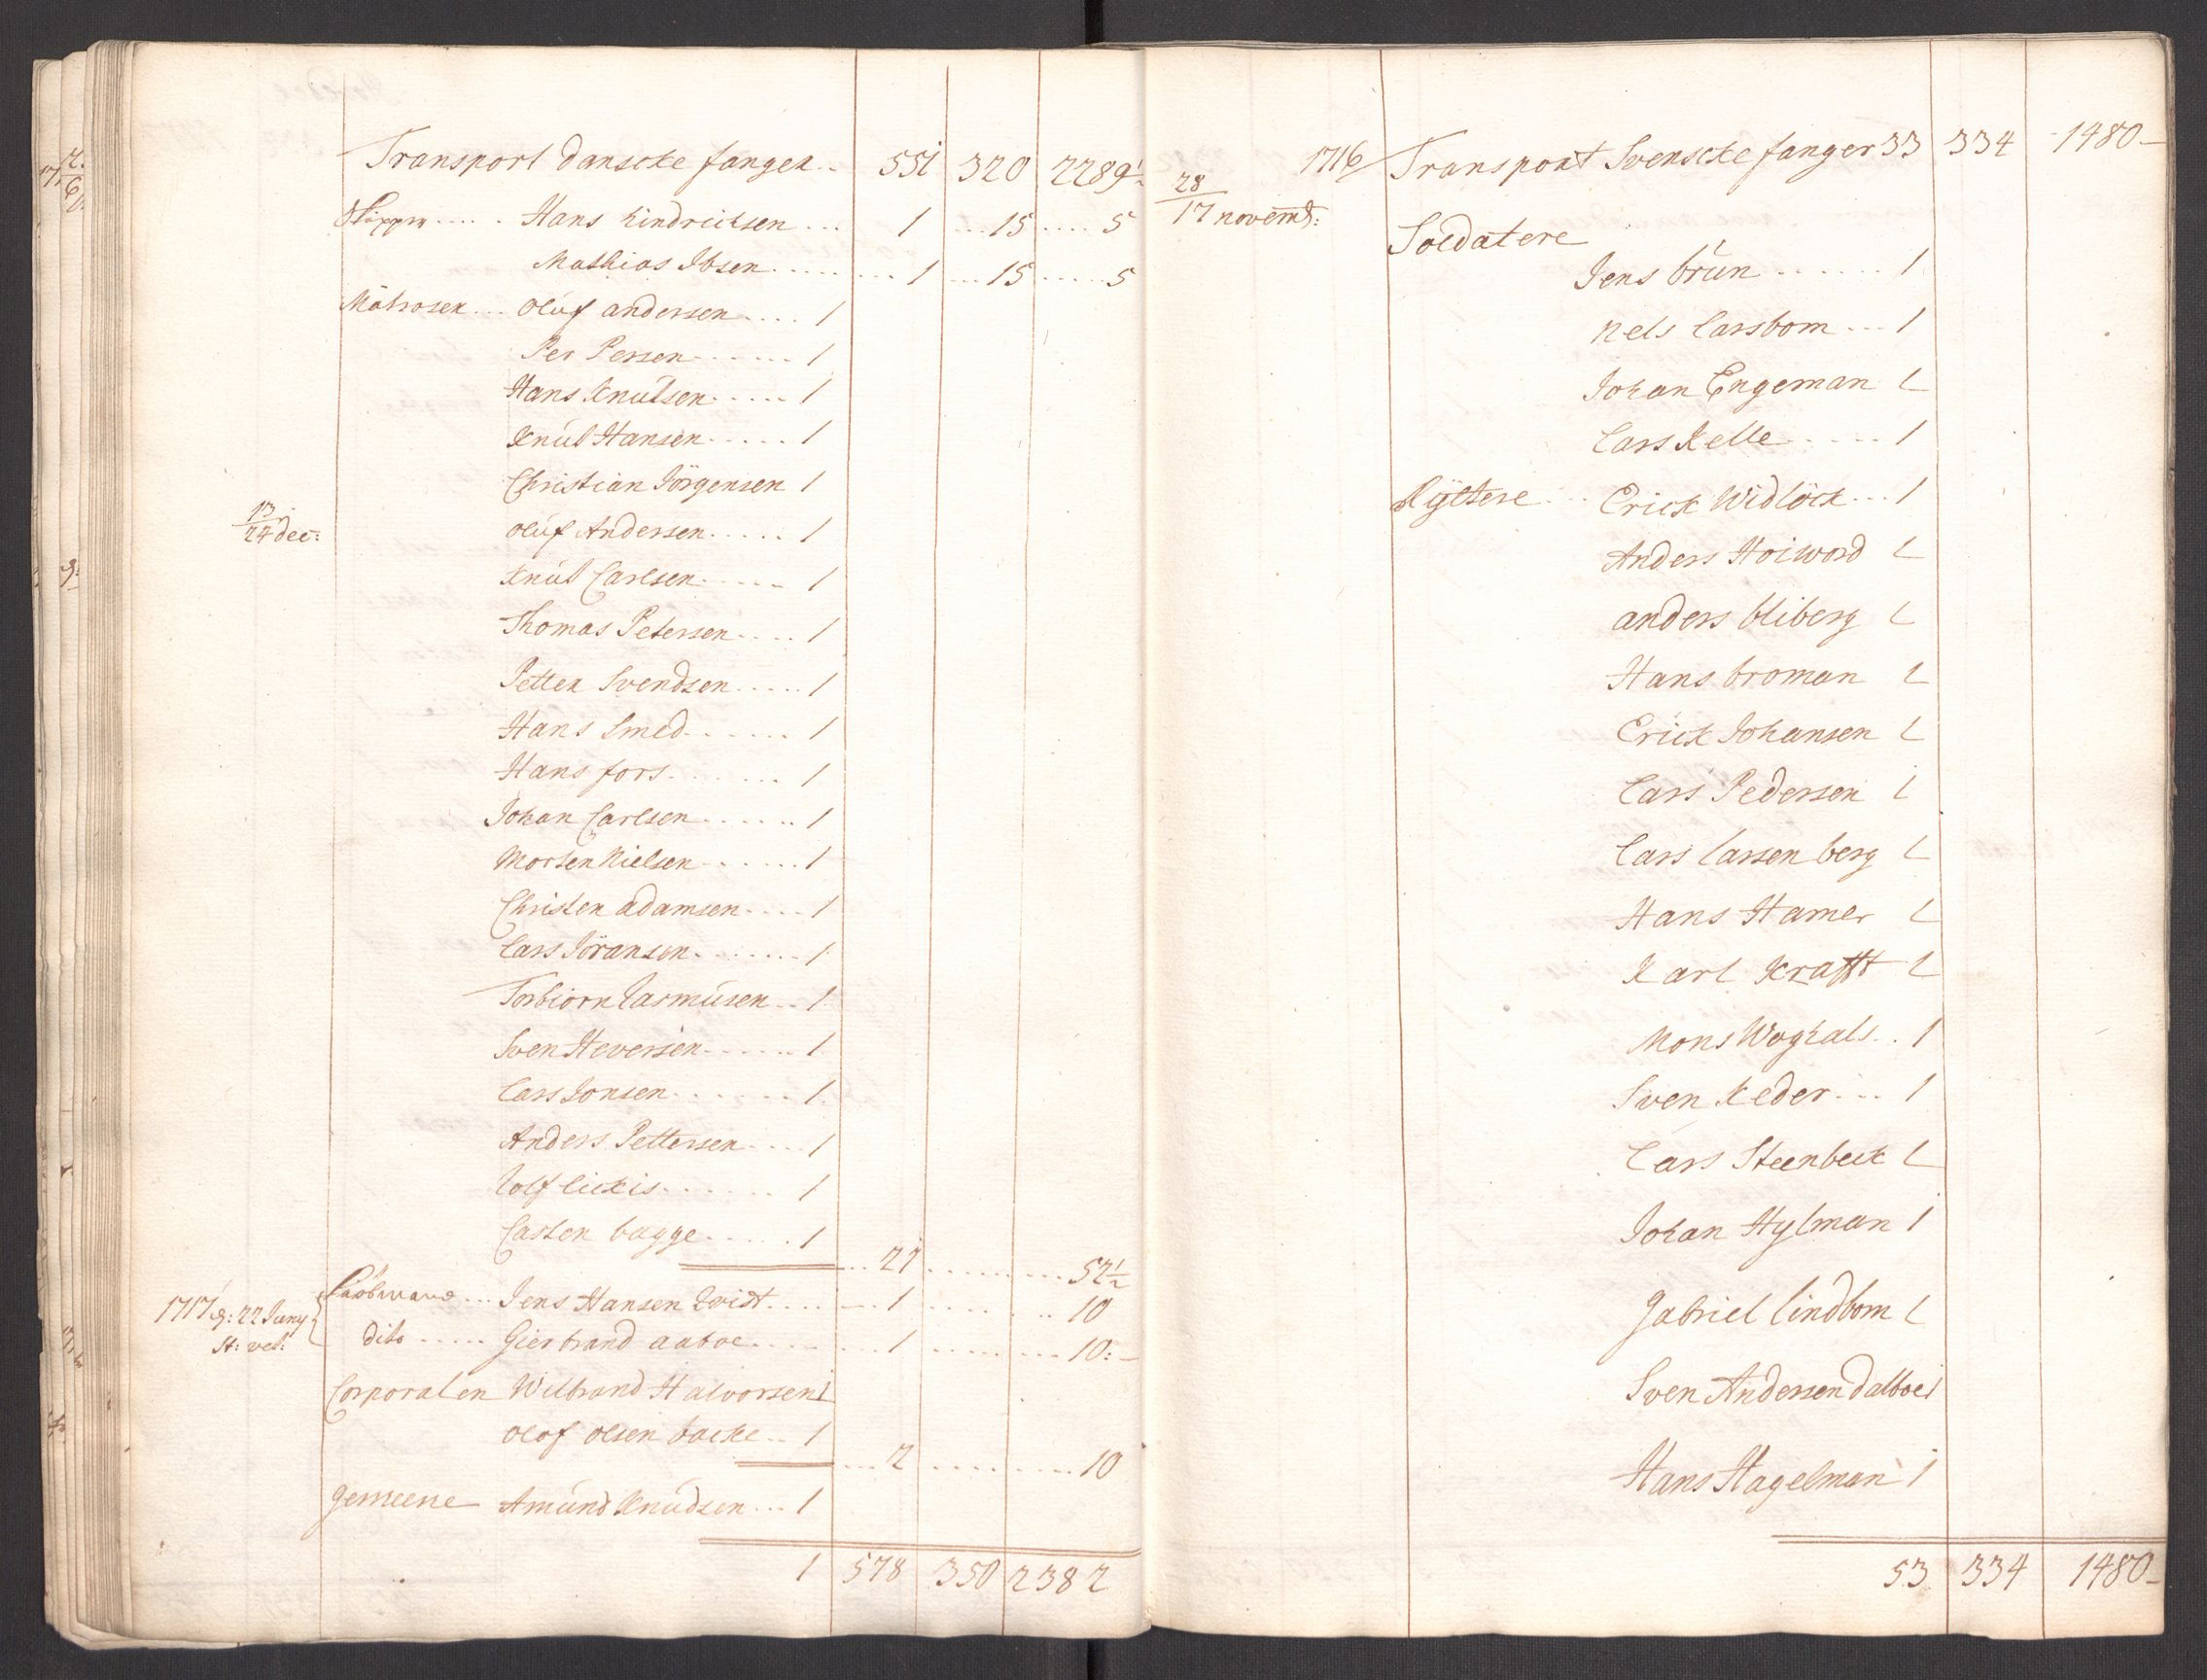 Transport danscke fanger .. 551 320 2289½
Skipper ..... Hans hindricksen ... 1 ... 15 ..... 5
Mathias Ibsen ........ 1 ... 15 ..... 5
Matroser ... oluf andersen .... 1
Per Persen ...... 1
Hans Knutsen ..... 1
Knut Hansen ..... 1
Christian Jörgensen 1
13/24 dec: oluf Andersen ..... 1
Knut Carlsen ..... 1
Thomas Petersen .... 1
Petter Svendsen ..... 1
Hans Smed ...... 1
Hans fors ....... 1
Johan Carlsen ...... 1
Morten Nielsen ...... 1
Christen adamsen .... 1
Lars Jöransen ....... 1
Torbiorn Rasmusen .. 1
Sven Heversen ...... 1
Lars Jonsen ...... 1
Anders Pettersen .... 1
Rolf lickis ...... 1
Casten bagge ..... 1
... 21 ........... 52½
1717 d: 22 Juny Kiöbmand ... Jens Hansen Qvist ..... 1 ....... 10
st: vet: dito ..... Giertrand aaboe ...... 1 ......... 10:–
Corporalen Wilbrand Halvorsen 1
olof olsen backe .. 1
.... 2 ........... 10
gemeene Amund Knudsen ... 1
1 578 350 2382
1716 Transport Svenscke fanger 33 334 1480–
28/17 novemb:
Soldatere
Jens brun ...... 1
Nels Larsbom ... 1
Johan Engeman 1
Lars Kelle ..... 1
Ryttere ... Erick Widlöck ... 1
Anders Hoiword 1
anders bliberg 1
Hans broman 1
Erick Johansen 1
Lars Pedersen 1
Lars Larsen berg 1
Hans Hamer 1
Karl Krafft 1
Mons Woghals .. 1
Sven Keder ... 1
Lars Steenbeck 1
Johan Hylman 1
Gabriel lindbom 1
Sven Andersen dalboe 1
Hans Hagelman 1
53 334 1480–